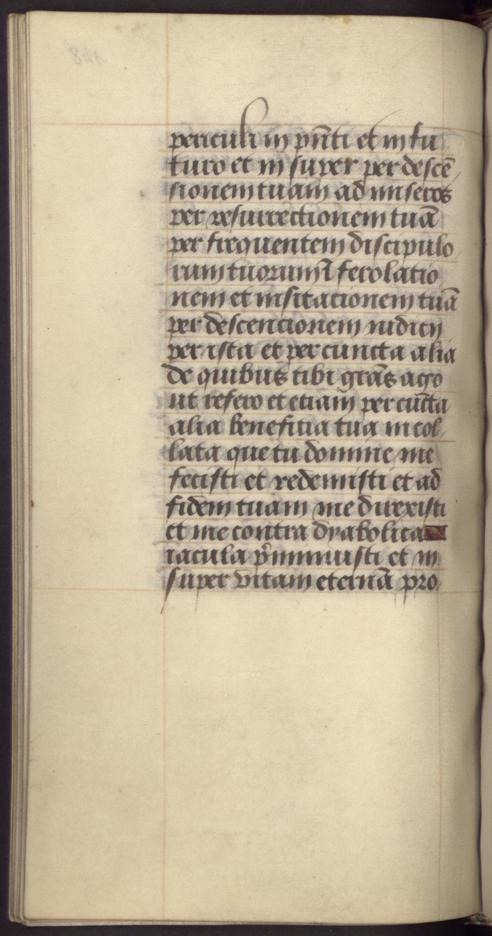 periculi in pñti et in fu
turo et in super per descē
sionem tuam ad miseros
per resurrectionem tuā
per frequentem discipulo
rum tuorum
nem et insitacionem tuā
per descencionem
per ista et per cuncta alia
de quibus tibi grās ago
ut refero et etiam per cūcta
alia benefitia tua mi col
lata que tu domine me
fecisti et redemisti et ad
fidem tuam me durexisti
et me contra dyabolica
iacula p̄mimuisti et in
super vitam eternā pro